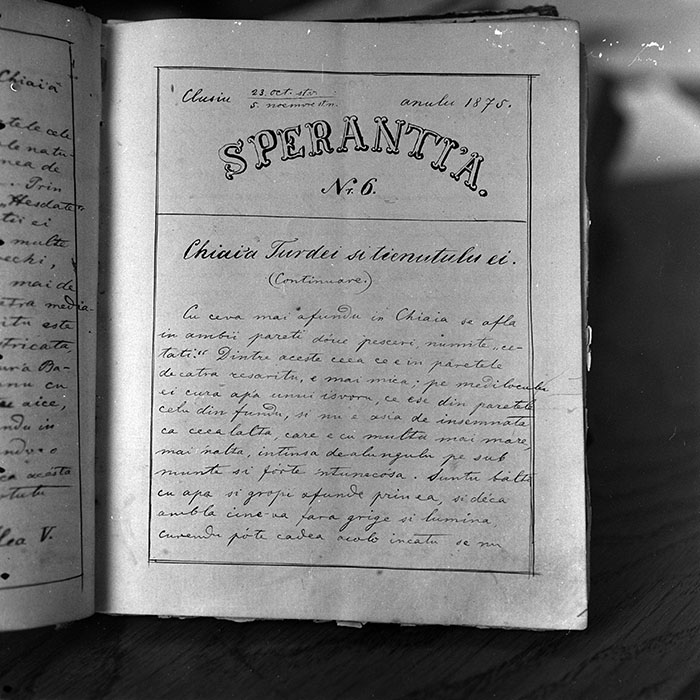 Chiai'a
"Hesdate"
multe
mai de
atra media-
ritu este
tricata,
aice,
ndu in
ca acésta
lea V.
Clusiu 23. oct. stv. anulu 1875.
5. noemvre stn.
SPERANTI'A.
Nr. 6.
Chiai'a Turdei si tienutulu ei.
(Continuare.)
Cu ceva mai afundu in Chiaia se afla
in ambii pareti dóue pesceri, numite „ce-
tati." Dintre aceste ceea ce e in páretele
de catra resaritu, e mai mica; pe mediloculu
ei cura apa unui isvoru, ce ese din paretele
celu din fundu, si nu e asia de insemnata
ca ceealalta, care e cu multu mai mare,
mai nalta, intinsa dealungulu pe sub
munte si fórte intunecosa. Suntu bálti
cu apa si gropi afunde prin ea, si déca
ambla cine-va fara grige si lumina,
curendu póte cadea acolo incâtu se nu